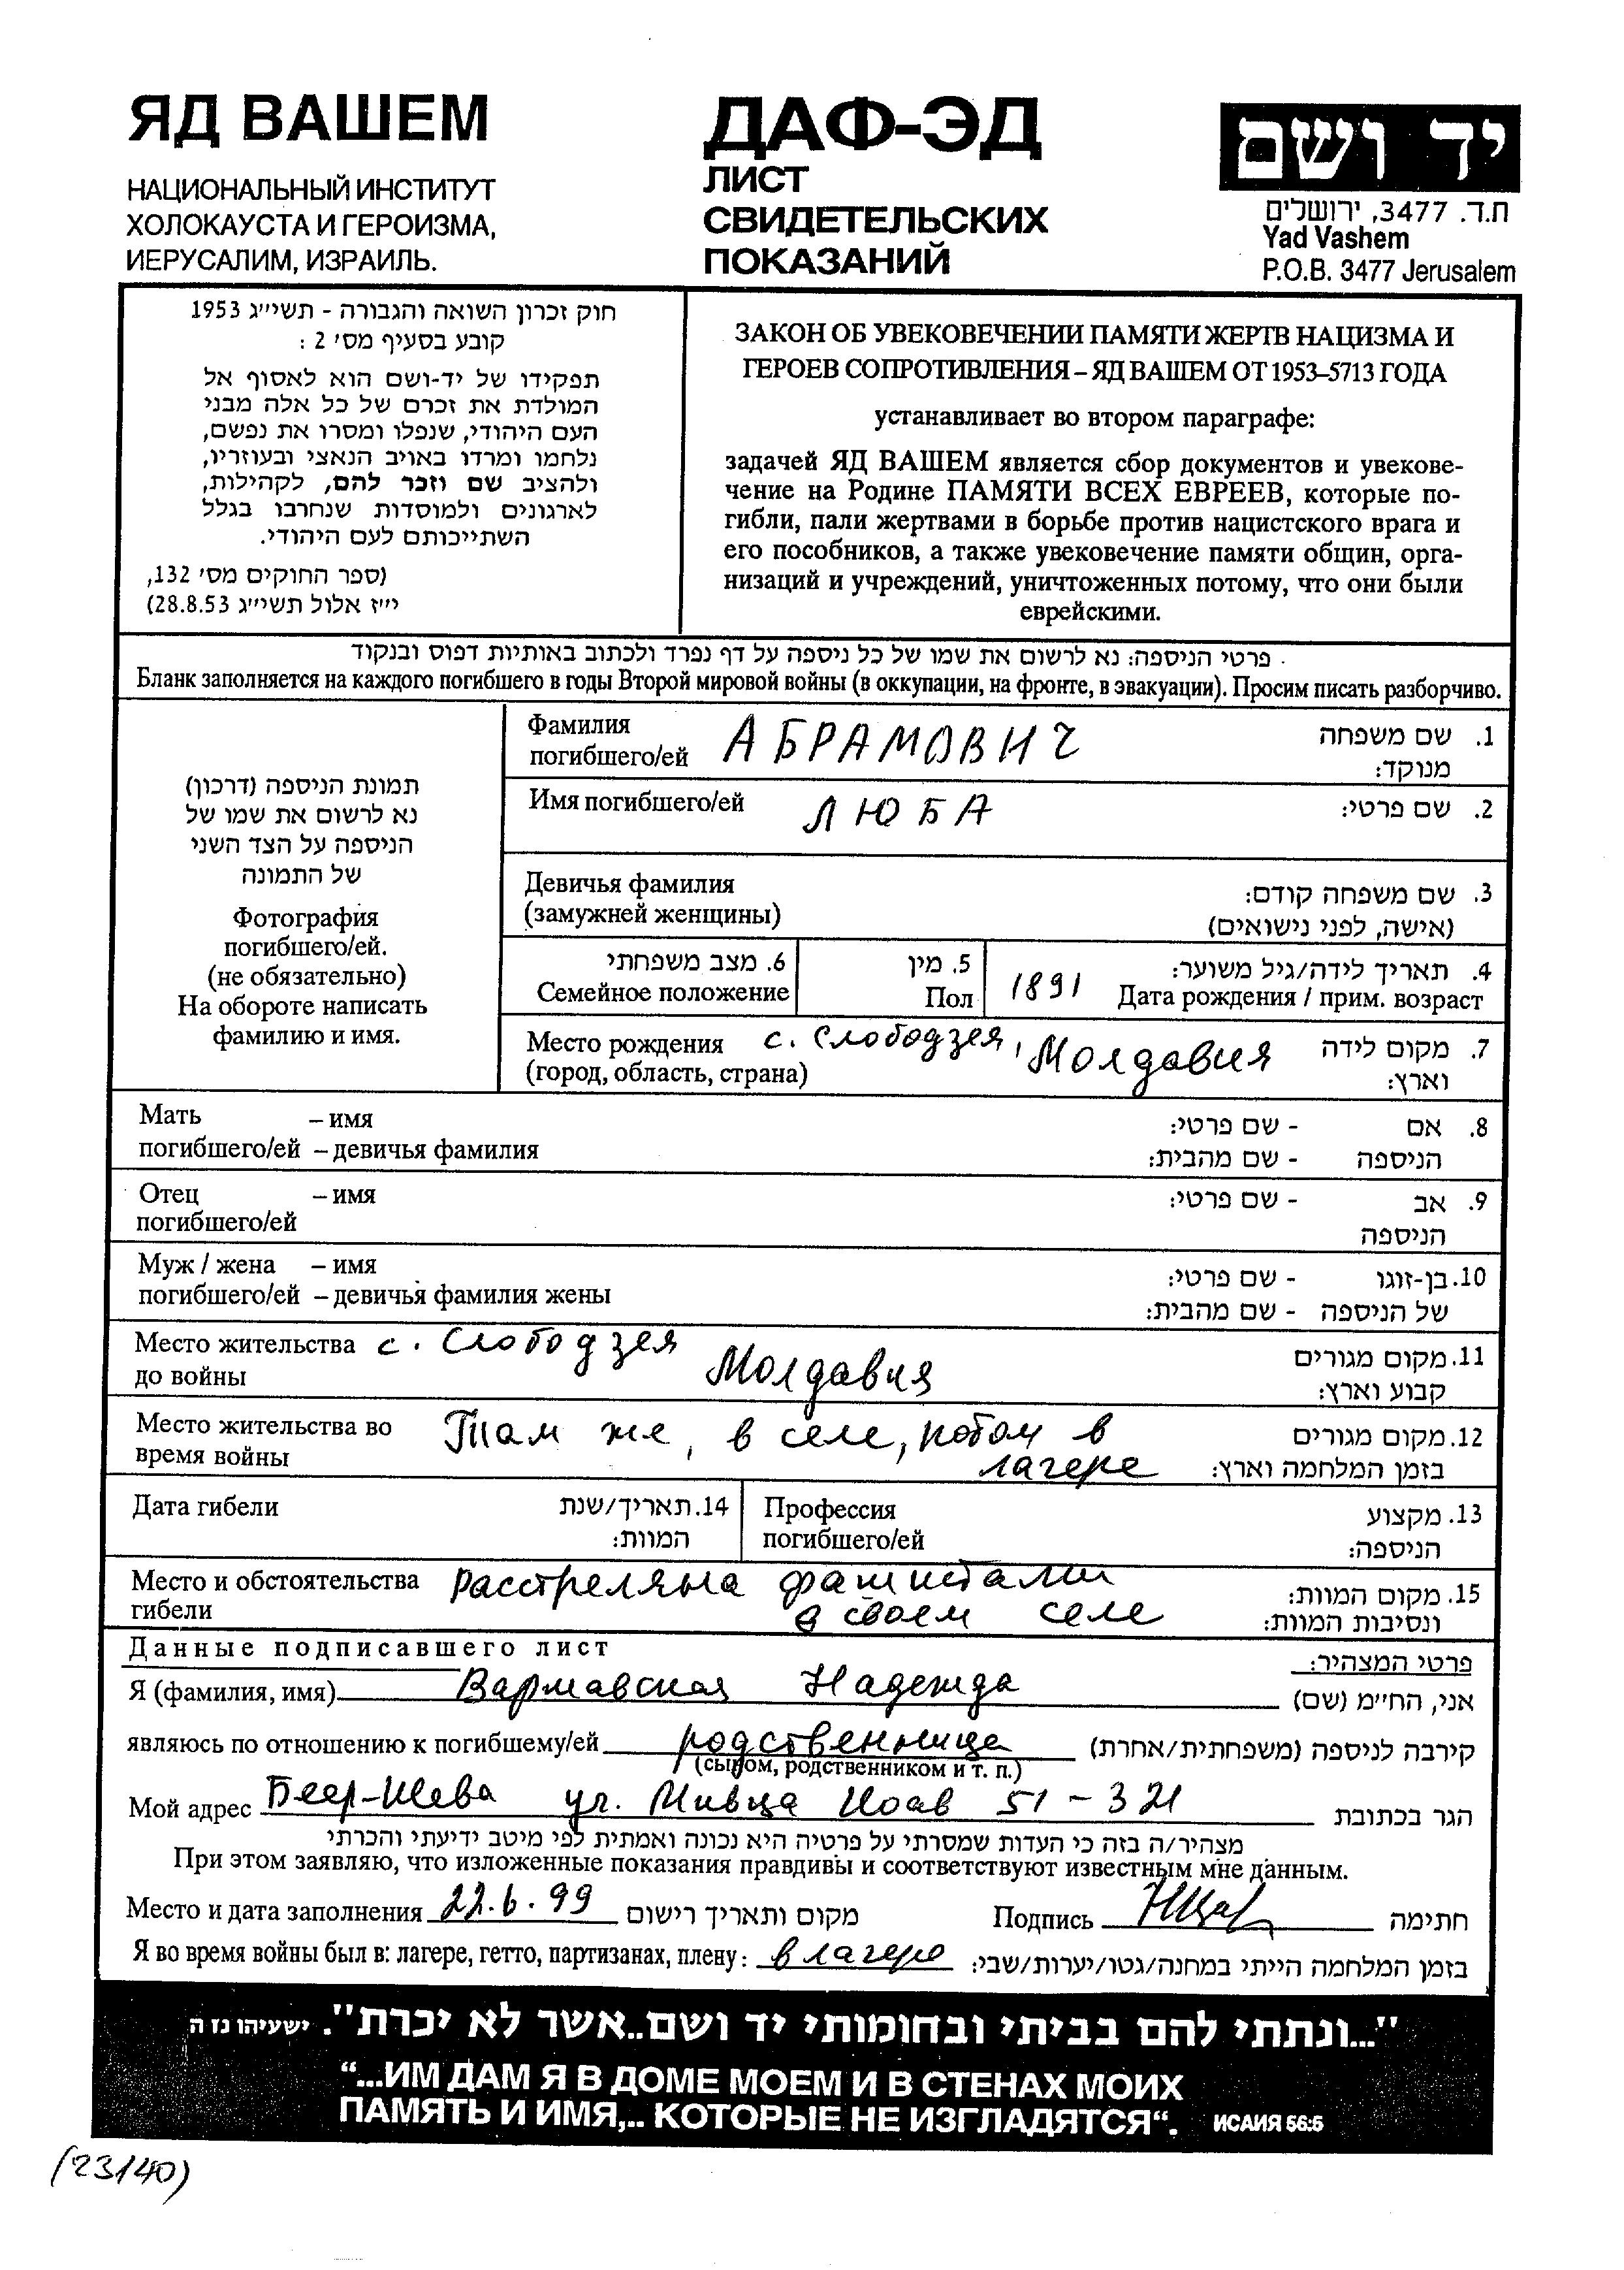 ЯД ВАШЕМ
НАЦИОНАЛЬНЫЙ ИНСТИТУТ
ХОЛОКАУСТА И ГЕРОИЗМА,
ИЕРУСАЛИМ, ИЗРАИЛЬ.
ДАФ-ЭД
ЛИСТ
СВИДЕТЕЛЬСКИХ
ПОКАЗАНИЙ
יד ושם
ת.ד. 3477, ירושלים
Yad Vashem
P.O.B. 3477 Jerusalem
חוק זכרון השואה והגבורה - תשי״ג 1953
קובע בסעיף מס׳ 2 :
תפקידו של יד-ושם הוא לאסוף אל
המולדת את זכרם של כל אלה מבני
העם היהודי, שנפלו ומסרו את נפשם,
נלחמו ומרדו באויב הנאצי ובעוזריו,
ולהציב שם וזכר להם, לקהילות,
לארגונים ולמוסדות שנחרבו בגלל
השתייכותם לעם היהודי.
(ספר החוקים מס׳ 132,
י״ז אלול תשי״ג 28.8.53)
ЗАКОН ОБ УВЕКОВЕЧЕНИИ ПАМЯТИ ЖЕРТВ НАЦИЗМА И
ГЕРОЕВ СОПРОТИВЛЕНИЯ – ЯД ВАШЕМ ОТ 1953–5713 ГОДА
устанавливает во втором параграфе:
задачей ЯД ВАШЕМ является сбор документов и увекове-
чение на Родине ПАМЯТИ ВСЕХ ЕВРЕЕВ, которые по-
гибли, пали жертвами в борьбе против нацистского врага и
его пособников, а также увековечение памяти общин, орга-
низаций и учреждений, уничтоженных потому, что они были
еврейскими.
פרטי הניספה: נא לרשום את שמו של כל ניספה על דף נפרד ולכתוב באותיות דפוס ובנקוד
Бланк заполняется на каждого погибшего в годы Второй мировой войны (в оккупации, на фронте, в эвакуации). Просим писать разборчиво.
תמונת הניספה (דרכון)
נא לרשום את שמו של
הניספה על הצד השני
של התמונה
Фотография
погибшего/ей.
(не обязательно)
На обороте написать
фамилию и имя.
Фамилия
погибшего/ей АБРАМОВИЧ
1. שם משפחה
מנוקד:
Имя погибшего/ей ЛЮБА 2. שם פרטי:
Девичья фамилия
(замужней женщины)
3. שם משפחה קודם:
(אישה, לפני נישואים)
6. מצב משפחתי
Семейное положение
5. מין
Пол
4. תאריך לידה/גיל משוער:
1891 Дата рождения / прим. возраст
Место рождения с. Слободзея, Молдавия
(город, область, страна)
7. מקום לידה
וארץ:
Мать – имя
погибшего/ей – девичья фамилия
8. אם - שם פרטי:
הניספה - שם מהבית:
Отец – имя
погибшего/ей
9. אב - שם פרטי:
הניספה
Муж / жена – имя
погибшего/ей – девичья фамилия жены
10. בן-זוגו - שם פרטי:
של הניספה - שם מהבית:
Место жительства с. Слободзея
до войны Молдавия
11. מקום מגורים
קבוע וארץ:
Место жительства во Там же, в селе, потом в
время войны лагере
12. מקום מגורים
בזמן המלחמה וארץ:
Дата гибели
14. תאריך/שנת
המוות:
Профессия
погибшего/ей
13. מקצוע
הניספה:
Место и обстоятельства Расстреляна фашистами
гибели в своем селе
15. מקום המוות:
ונסיבות המוות:
Данные подписавшего лист
פרטי המצהיר:
Я (фамилия, имя) Варшавская Надежда אני, הח״מ (שם)
являюсь по отношению к погибшему/ей родственница קירבה לניספה (משפחתית/אחרת)
(сыном, родственником и т. п.)
Мой адрес Беер-Шева ул. Мивца Иоав 51 – 321 הגר בכתובת
מצהיר/ה בזה כי העדות שמסרתי על פרטיה היא נכונה ואמתית לפי מיטב ידיעתי והכרתי
При этом заявляю, что изложенные показания правдивы и соответствуют известным мне данным.
Место и дата заполнения 22.6.99 מקום ותאריך רישום Подпись חתימה
Я во время войны был в: лагере, гетто, партизанах, плену: в лагере בזמן המלחמה הייתי במחנה/גטו/יערות/שבי:
"...ונתתי להם בביתי ובחומותי יד ושם..אשר לא יכרת". ישעיהו נז ה
“...ИМ ДАМ Я В ДОМЕ МОЕМ И В СТЕНАХ МОИХ
ПАМЯТЬ И ИМЯ,.. КОТОРЫЕ НЕ ИЗГЛАДЯТСЯ“. ИСАИЯ 56:5
(23140)